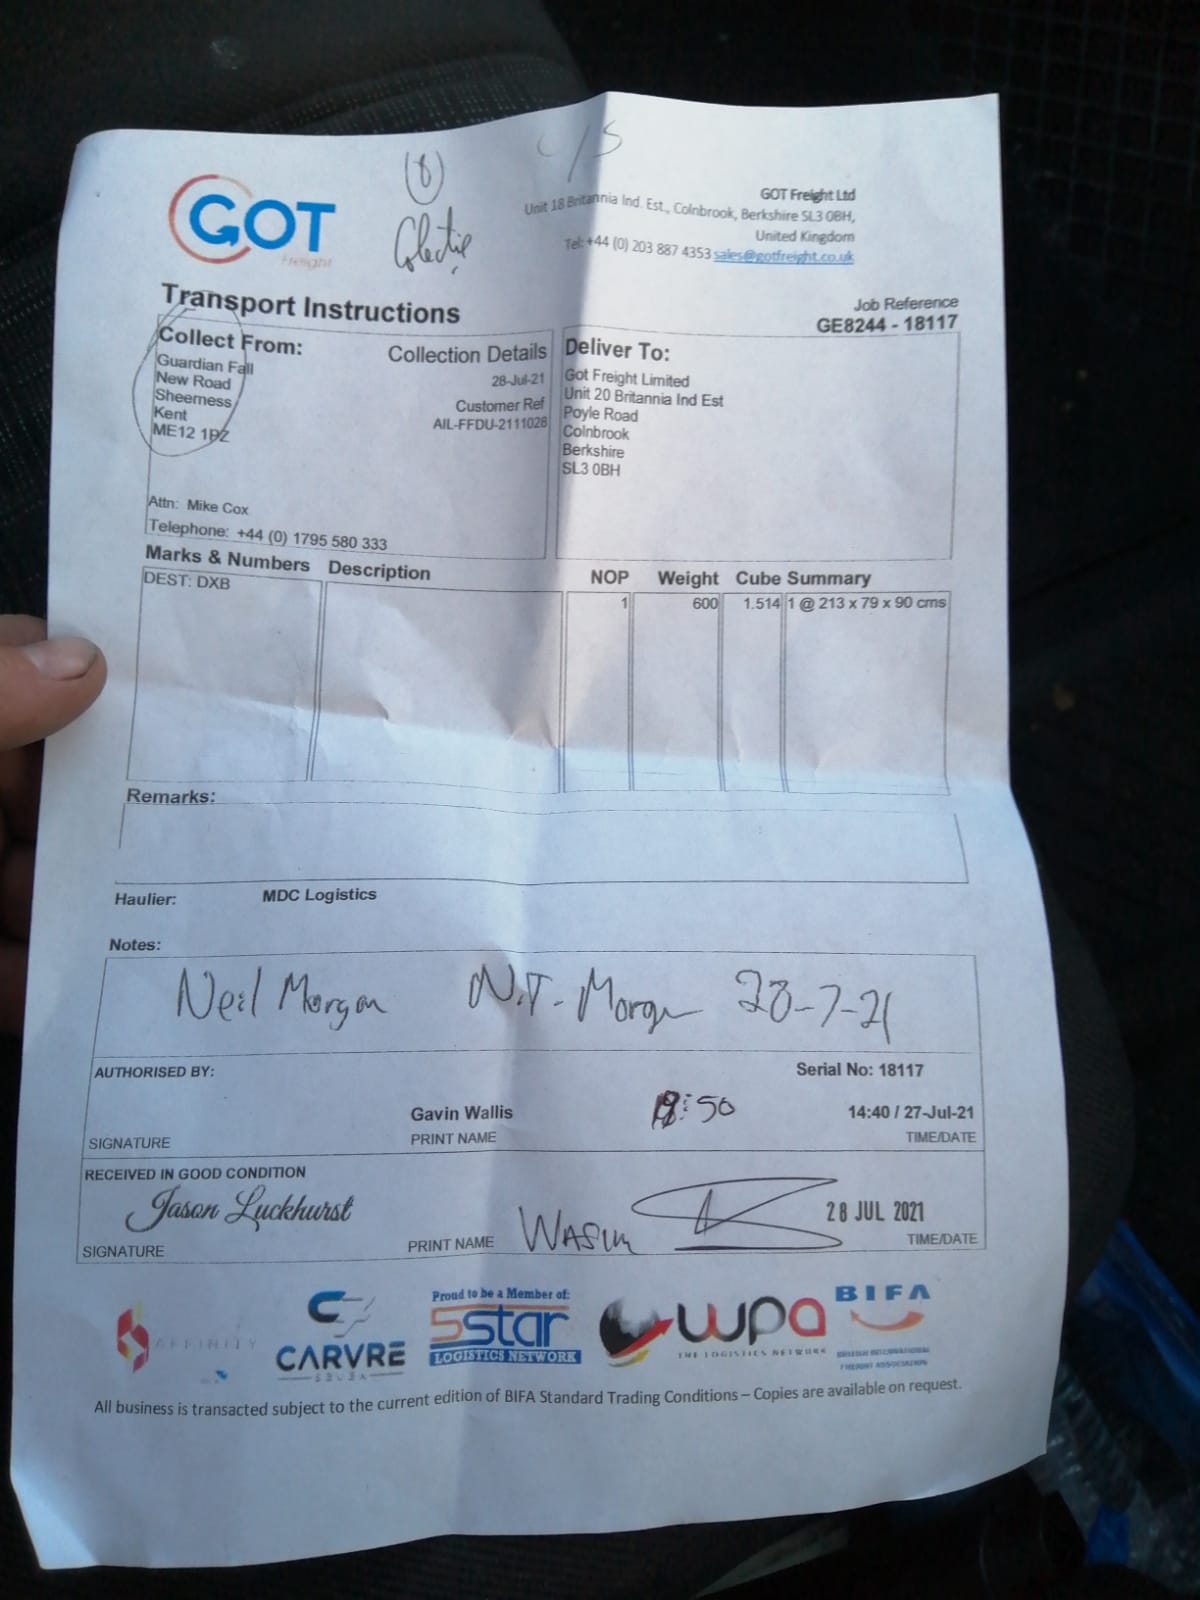 GOT
freight
(8)
C/S
GOT Freight Ltd
Unit 18 Britannia Ind. Est., Colnbrook, Berkshire SL3 0BH,
United Kingdom
Tel: +44 (0) 203 887 4353 sales@gotfreight.co.uk
Transport Instructions
Job Reference
GE8244 - 18117
Collect From:
Guardian Fall
New Road
Sheerness
Kent
ME12 1PZ
Collection Details
28-Jul-21
Customer Ref
AIL-FFDU-2111028
Attn: Mike Cox
Telephone: +44 (0) 1795 580 333
Deliver To:
Got Freight Limited
Unit 20 Britannia Ind Est
Poyle Road
Colnbrook
Berkshire
SL3 0BH
Marks & Numbers Description NOP Weight Cube Summary
DEST: DXB 1 600 1.514 1 @ 213 x 79 x 90 cms
Remarks:
Haulier: MDC Logistics
Notes:
Neil Morgan N.T. Morgan 28-7-21
AUTHORISED BY: Serial No: 18117
Gavin Wallis :50 14:40 / 27-Jul-21
SIGNATURE PRINT NAME TIME/DATE
RECEIVED IN GOOD CONDITION
Jason Luckhurst 28 JUL 2021
SIGNATURE PRINT NAME TIME/DATE
AFFINITY
CARVRE
Proud to be a Member of:
5star
LOGISTICS NETWORK
wpa
THE LOGISTICS NETWORK
BIFA
BRITISH INTERNATIONAL
FREIGHT ASSOCIATION
All business is transacted subject to the current edition of BIFA Standard Trading Conditions – Copies are available on request.